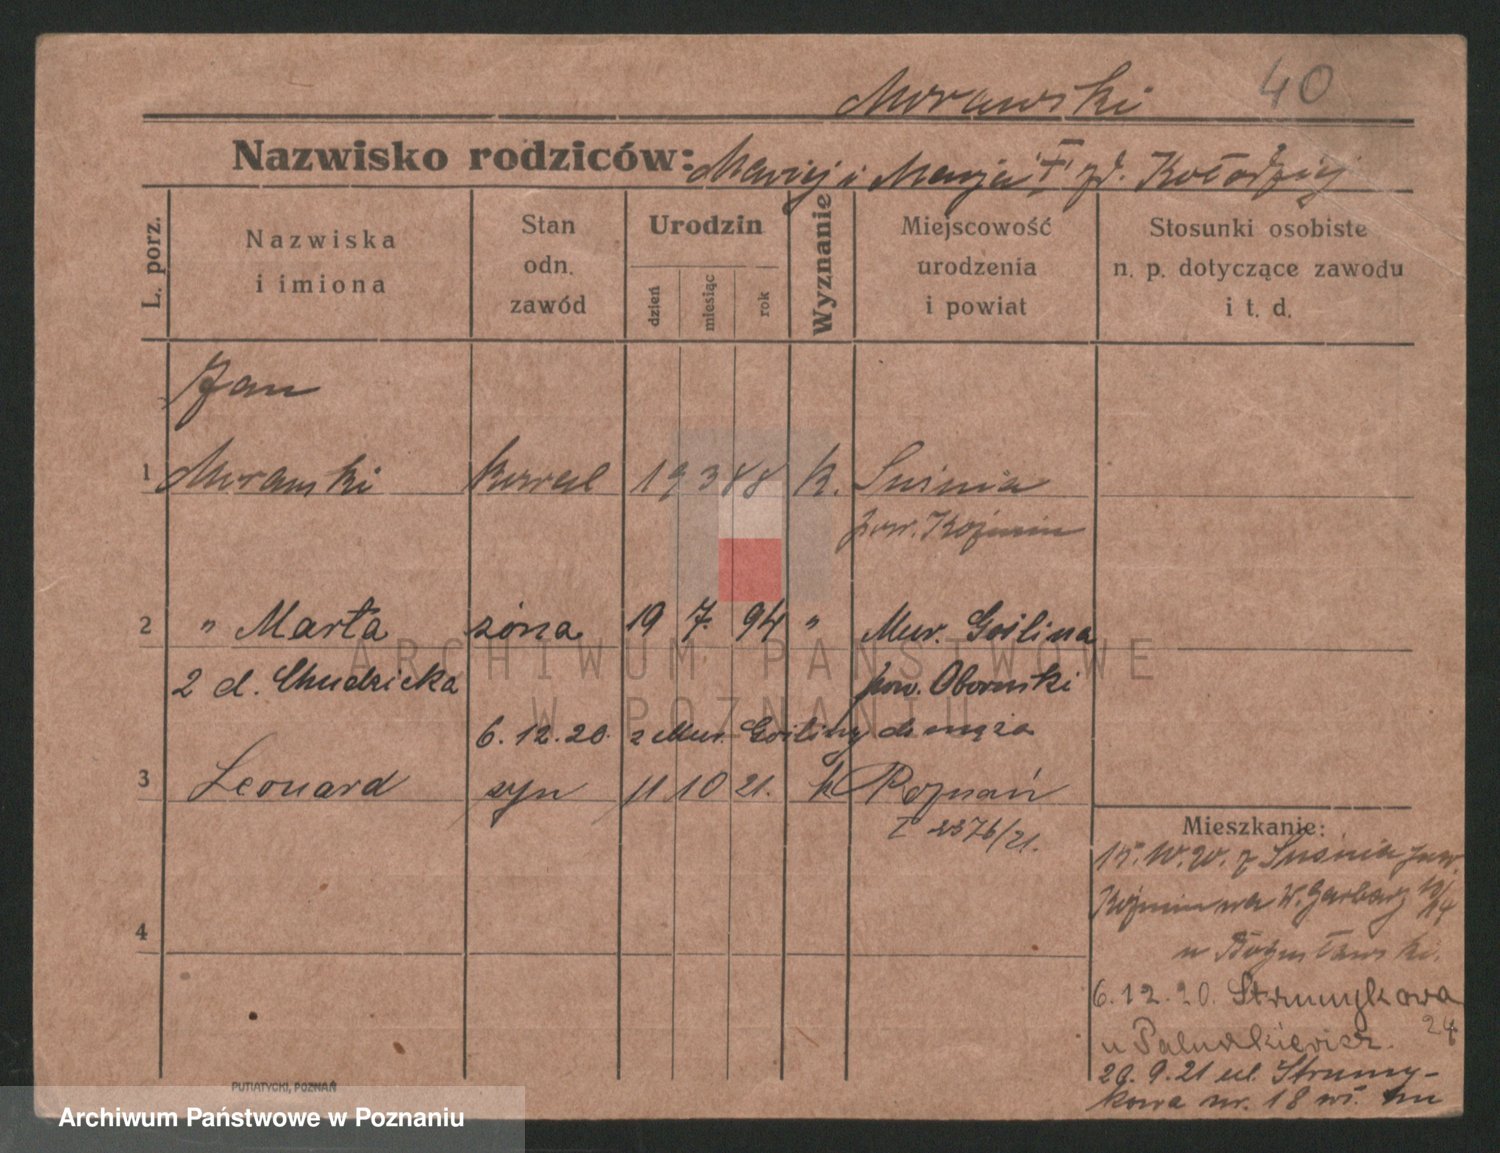 Morawski 40
Nazwisko rodziców: Maciej i Marja zd. Kołodziej
L. porz.
Nazwiska
i imiona
Stan
odn.
zawód
Urodzin
dzień
miesiąc
rok
Wyznanie
Miejscowość
urodzenia
i powiat
Stosunki osobiste
n. p. dotyczące zawodu
i t. d.
Jan
1 Morawski kowal 19 3 88 k. Suśnia
pow. Koźmin
2 " Marta żona 19 7. 94 " Mur. Goślina
2 d. Chudzicka pow. Obornski
6.12.20. z Mur. Gośliny do męża
3 Leonard syn 11 10 21. k Poznań
I 2376/21.
4
Mieszkanie:
15. W.W. z Suśnia pow.
Koźmin na W. Garbary
u Bogusławski.
6.12.20. Strumykowa
24
u Paluszkiewicz.
20.9.21 ul. Strumy-
kowa nr. 18
PUTIATYCKI, POZNAŃ
ARCHIWUM PAŃSTWOWE
W POZNANIU
Archiwum Państwowe w Poznaniu